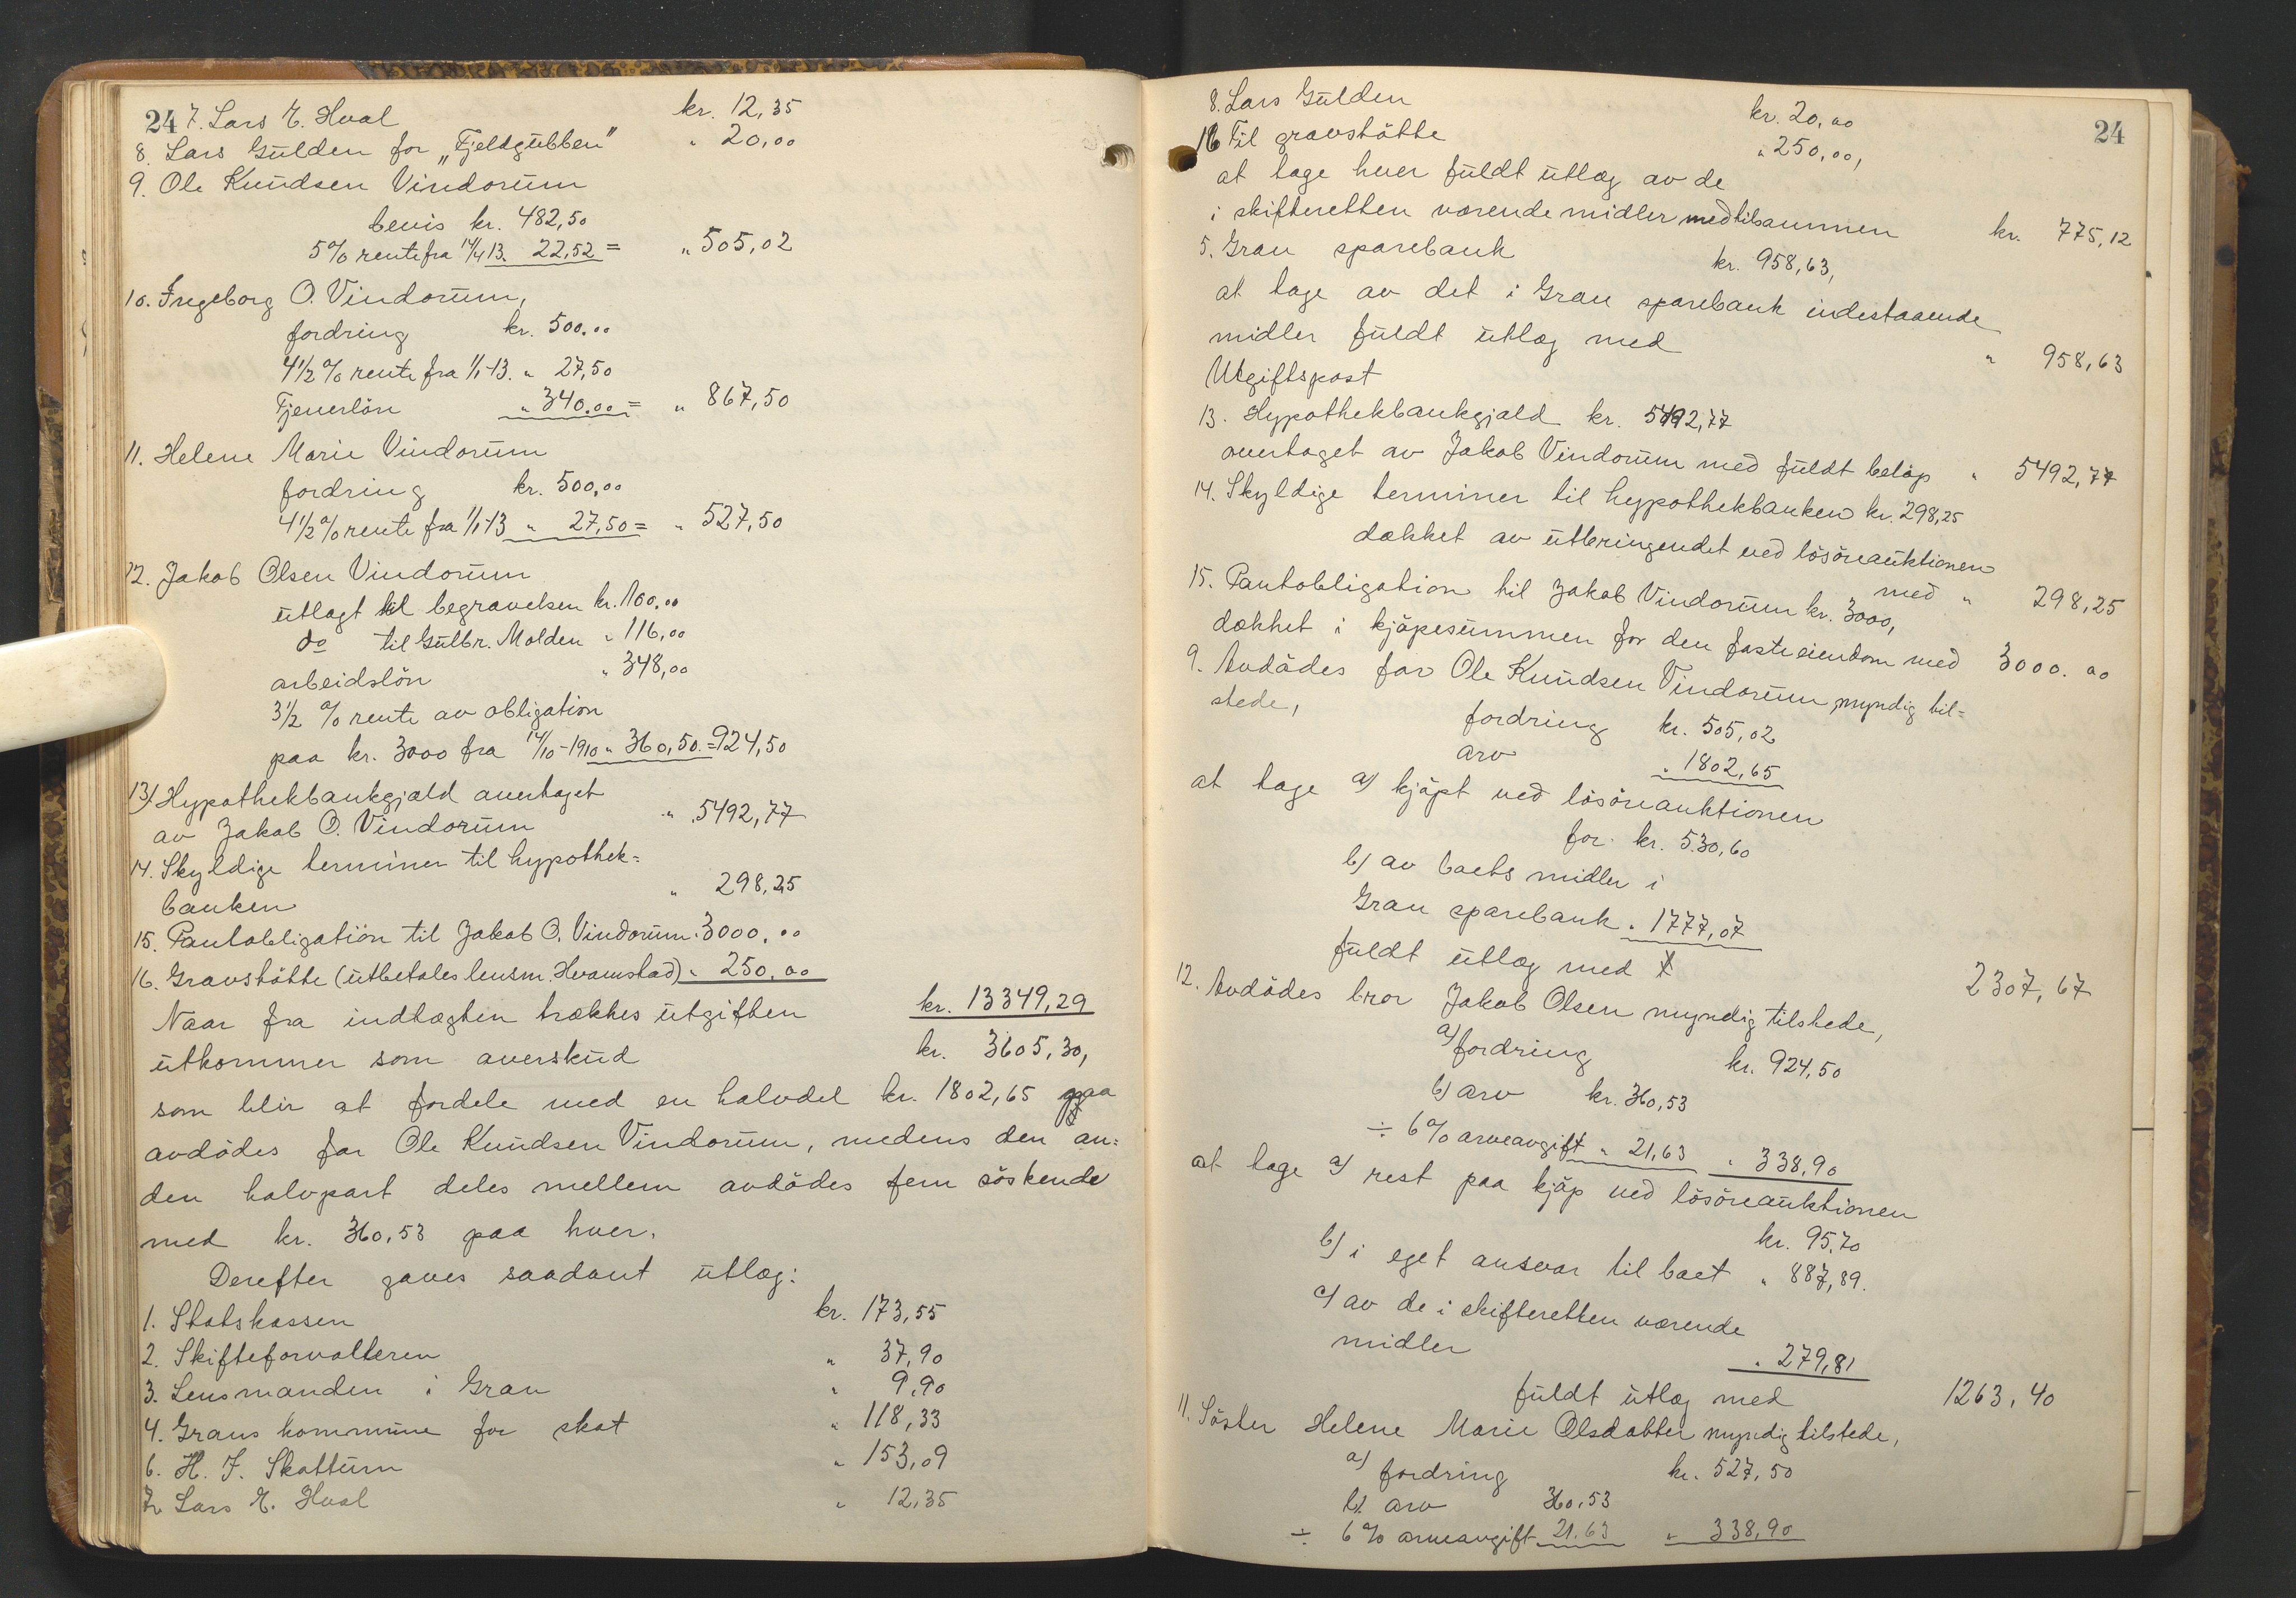 24 7. Lars E. Hval kr. 12,35
8. Lars Gulden for „Fjeldgubben" " 20,00
9. Ole Knudsen Vindorum
bevis kr. 482,50
5% rente fra 14/4 13. 22,52 = " 505,02
10. Ingeborg O. Vindorum,
fordring kr. 500.00
4 1/2 % rente fra 1/1-13. " 27,50
Tjenerløn " 340.00 = " 867,50
11. Helene Marie Vindorum
fordring kr. 500,00
4 1/2 % rente fra 1/1-13 " 27,50 = " 527,50
12. Jakob Olsen Vindorum
utlagt til begravelsen kr. 100.00
do til Gulbr. Molden " 116,00
arbeidsløn " 348,00
3 1/2 % rente av obligation
paa kr. 3000 fra 14/10-1910 " 360,50. = 924,50
13). Hypothekbankgjæld overtaget
av Jakob O. Vindorum " 5492,77
14. Skyldige terminer til hypothek=
banken " 298,25
15. Pantobligation til Jakob O. Vindorum " 3000.00
16. Gravstøtte (utbetales lensm. Hvamstad) " 250.00
kr. 13349,29
Naar fra indtægten trækkes utgiften
utkommer som overskud kr. 3605,30,
som blir at fordele med en halvdel kr. 1802,65 paa
avdødes far Ole Knudsen Vindorum, medens den an=
den halvpart deles mellem avdødes fem søskende
med kr. 360,53 paa hver.
Derefter gaves saadant utlæg:
1. Statskassen kr. 173,55
2. Skifteforvalteren " 37,90
3. Lensmanden i Gran " 9,90
4. Grans kommune for skat " 118,33
6. H. J. Skattum " 153,09
7. Lars E. Hval " 12,35
8. Lars Gulden kr. 20,00
24
16 Til gravstøtte " 250,00,
at tage hver fuldt utlæg av de
i skifteretten værende midler med tilsammen kr. 775,12
5. Gran sparebank kr. 958,63,
at tage av det i Gran sparebank indestaaende
midler fuldt utlæg med " 958,63
Utgiftspost
13. Hypothekbankgjæld kr. 5492,77
overtaget av Jakob Vindorum med fuldt beløp " 5492,77
14. Skyldige terminer til hypothekbanken kr. 298,25
dækket av utbringendet ved løsøreauktionen
med " 298,25
15. Pantobligation til Jakob Vindorum kr. 3000,
dækket i kjøpesummen for den faste eiendom med 3000.00
9. Avdødes far Ole Knudsen Vindorum myndig til=
stede,
fordring kr. 505,02
arv " 1802,65
at tage a) kjøpt ved løsøreauktionen
for kr. 530,60
b) av boets midler i
Gran sparebank " 1777,07
fuldt utlæg med 2307,67
12. Avdødes bror Jakob Olsen myndig tilstede,
a) fordring kr. 924,50
b) arv kr. 360,53
÷ 6% arveavgift " 21,63 " 338,90
at tage a) rest paa kjøp ved løsøreauktionen
kr. 95,70
b) i eget ansvar til boet " 887,89.
c) av de i skifteretten værende
midler " 279,81
fuldt utlæg med 1263,40
11. Søster Helene Marie Olsdatter myndig tilstede,
a) fordring kr. 527,50
b) arv 360,53
÷ 6% arveavgift 21.63 " 338,90